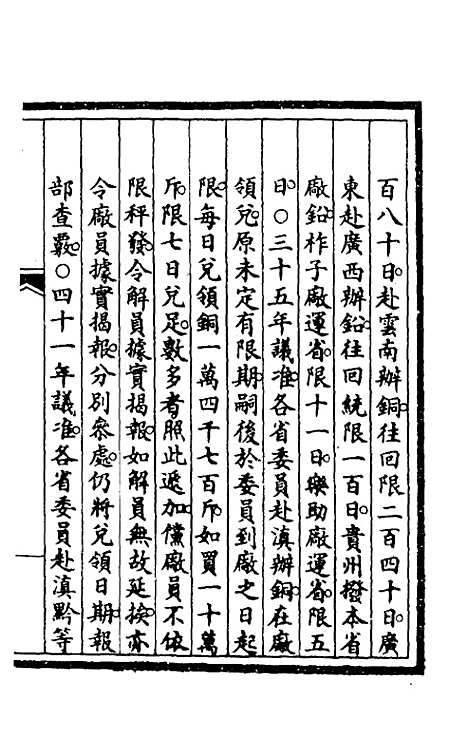 百八十日。赴雲南辦銅。往回限二百四十日。廣
東赴廣西辦鉛。往回統限一百日。貴州撥本省
廠鉛。柞子廠運省。限十一日。樂助廠運省。限五
日。○三十五年議准。各省委員赴滇辦銅。在廠
領兌。原未定有限期。嗣後於委員到廠之日起
限。每日兌領銅一萬四千七百斤。如買一十萬
斤。限七日兌足。數多者照此遞加。儻廠員不依
限秤發。令解員據實揭報。如解員無故延挨。亦
令廠員據實揭報。分別參處。仍將兌領日期。報
部查覈。○四十一年議准。各省委員赴滇黔等